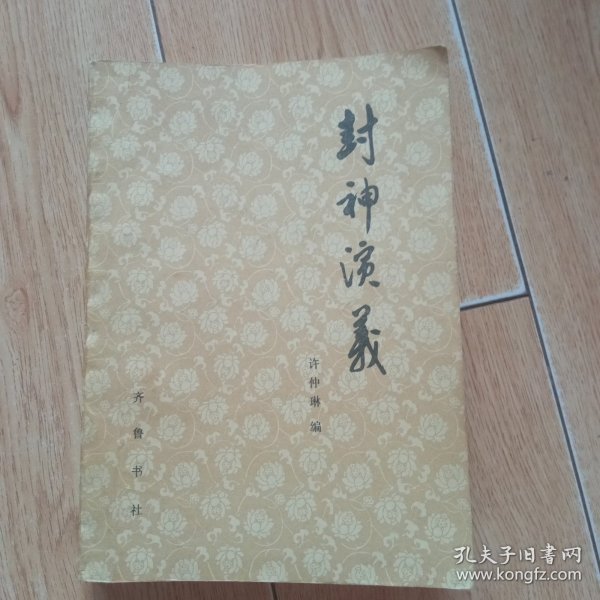 封神演義
许仲琳 编
齐鲁书社
孔夫子旧书网
www.kongfz.com